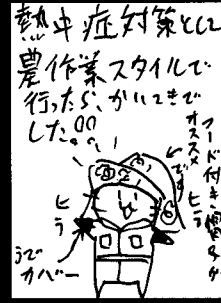 熱中症対策として
農作業スタイルで
行ったら、かいてきで
した。
フード付き帽子が
オススメ
です
ヒラ
ヒラ
うで
カバー